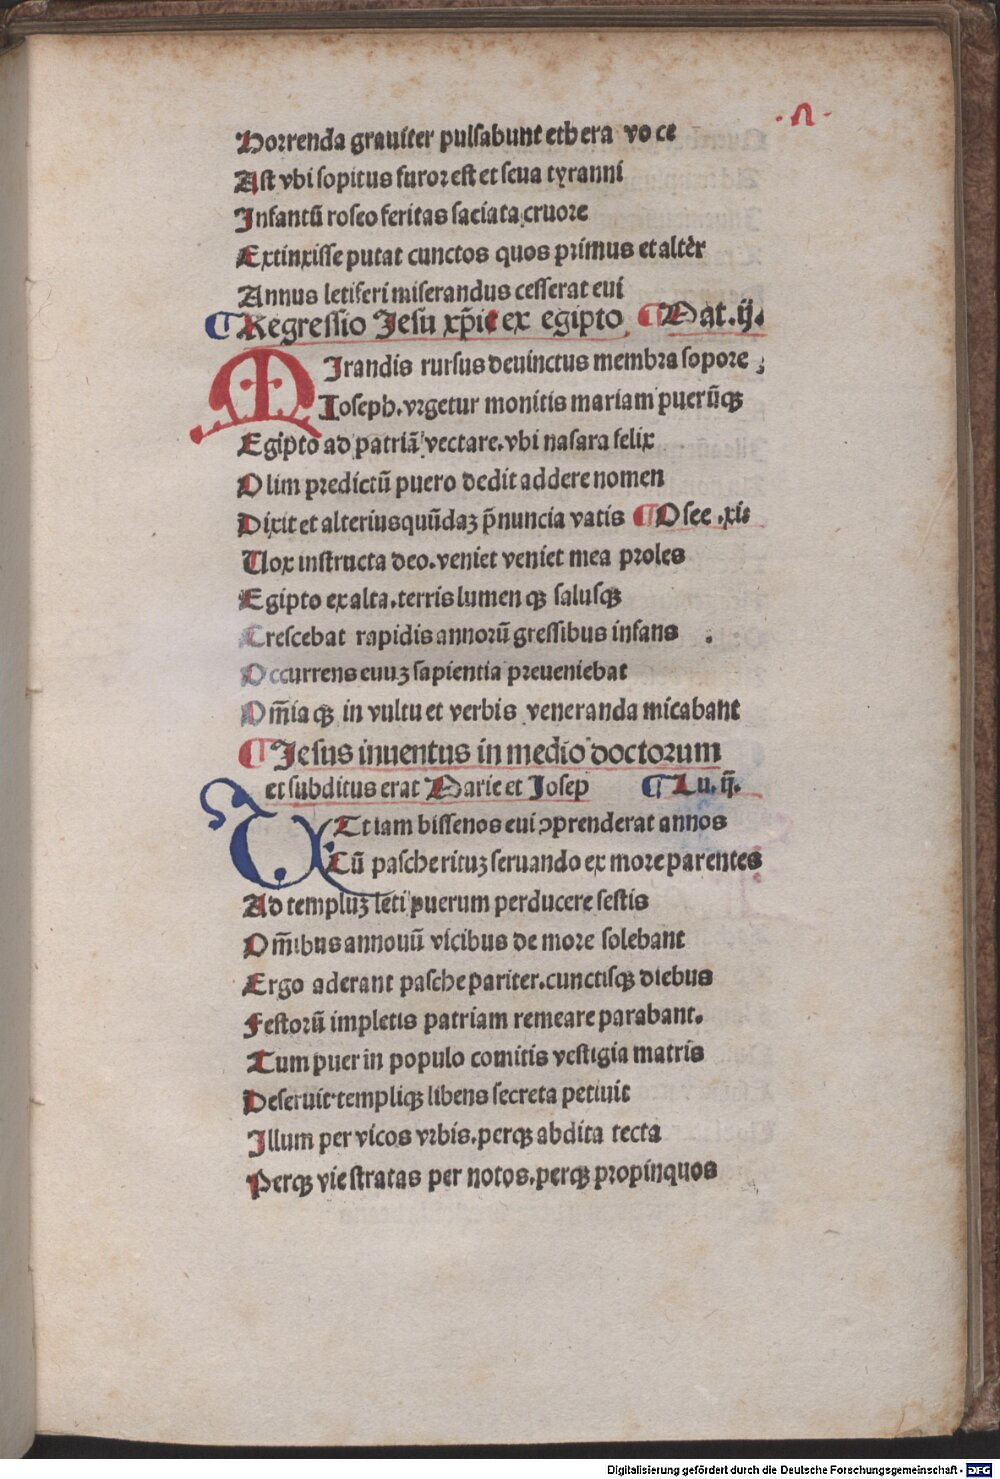 .n.
Horrenda grauiter pulsabunt ethera vo ce
Ast vbi sopitus furor est et seua tyranni
Infantū roseo feritas saciata cruore
Extinxisse putat cunctos quos primus et alter
Annus letiferi miserandus cesserat eui
¶Regressio Jesu xp̄i et ex egipto ¶Mat.ij.
MIrandis rursus deuinctus membra sopore ;
Ioseph.vrgetur monitis mariam puerūqꝫ
Egipto ad patriā vectare.vbi nasara felix
Olim predictū puero dedit addere nomen
Dixit et alterius quūdaꝫ p̄nuncia vatis ¶Osee .xi.
Uox instructa deo.veniet veniet mea proles
Egipto exalta.terris lumen qꝫ salusqꝫ
Crescebat rapidis annorū gressibus infans .
Occurrens euuꝫ sapientia preueniebat
Om̄ia qꝫ in vultu et verbis veneranda micabant
¶Jesus inuentus in medio doctorum
et subditus erat Marie et Iosep ¶Lu.ij.
UT iam bissenos eui ꝯprenderat annos
Tū pasche rituꝫ seruando ex more parentes
Ad templuꝫ leti puerum perducere festis
Om̄ibus annouū vicibus de more solebant
Ergo aderant pasche pariter.cunctisqꝫ diebus
Festorū impletis patriam remeare parabant.
Tum puer in populo comitis vestigia matris
Deseruit.templiqꝫ libens secreta petiuit
Illum per vicos vrbis.perqꝫ abdita tecta
Perqꝫ vie stratas per notos.perqꝫ propinquos
Digitalisierung gefördert durch die Deutsche Forschungsgemeinschaft - DFG